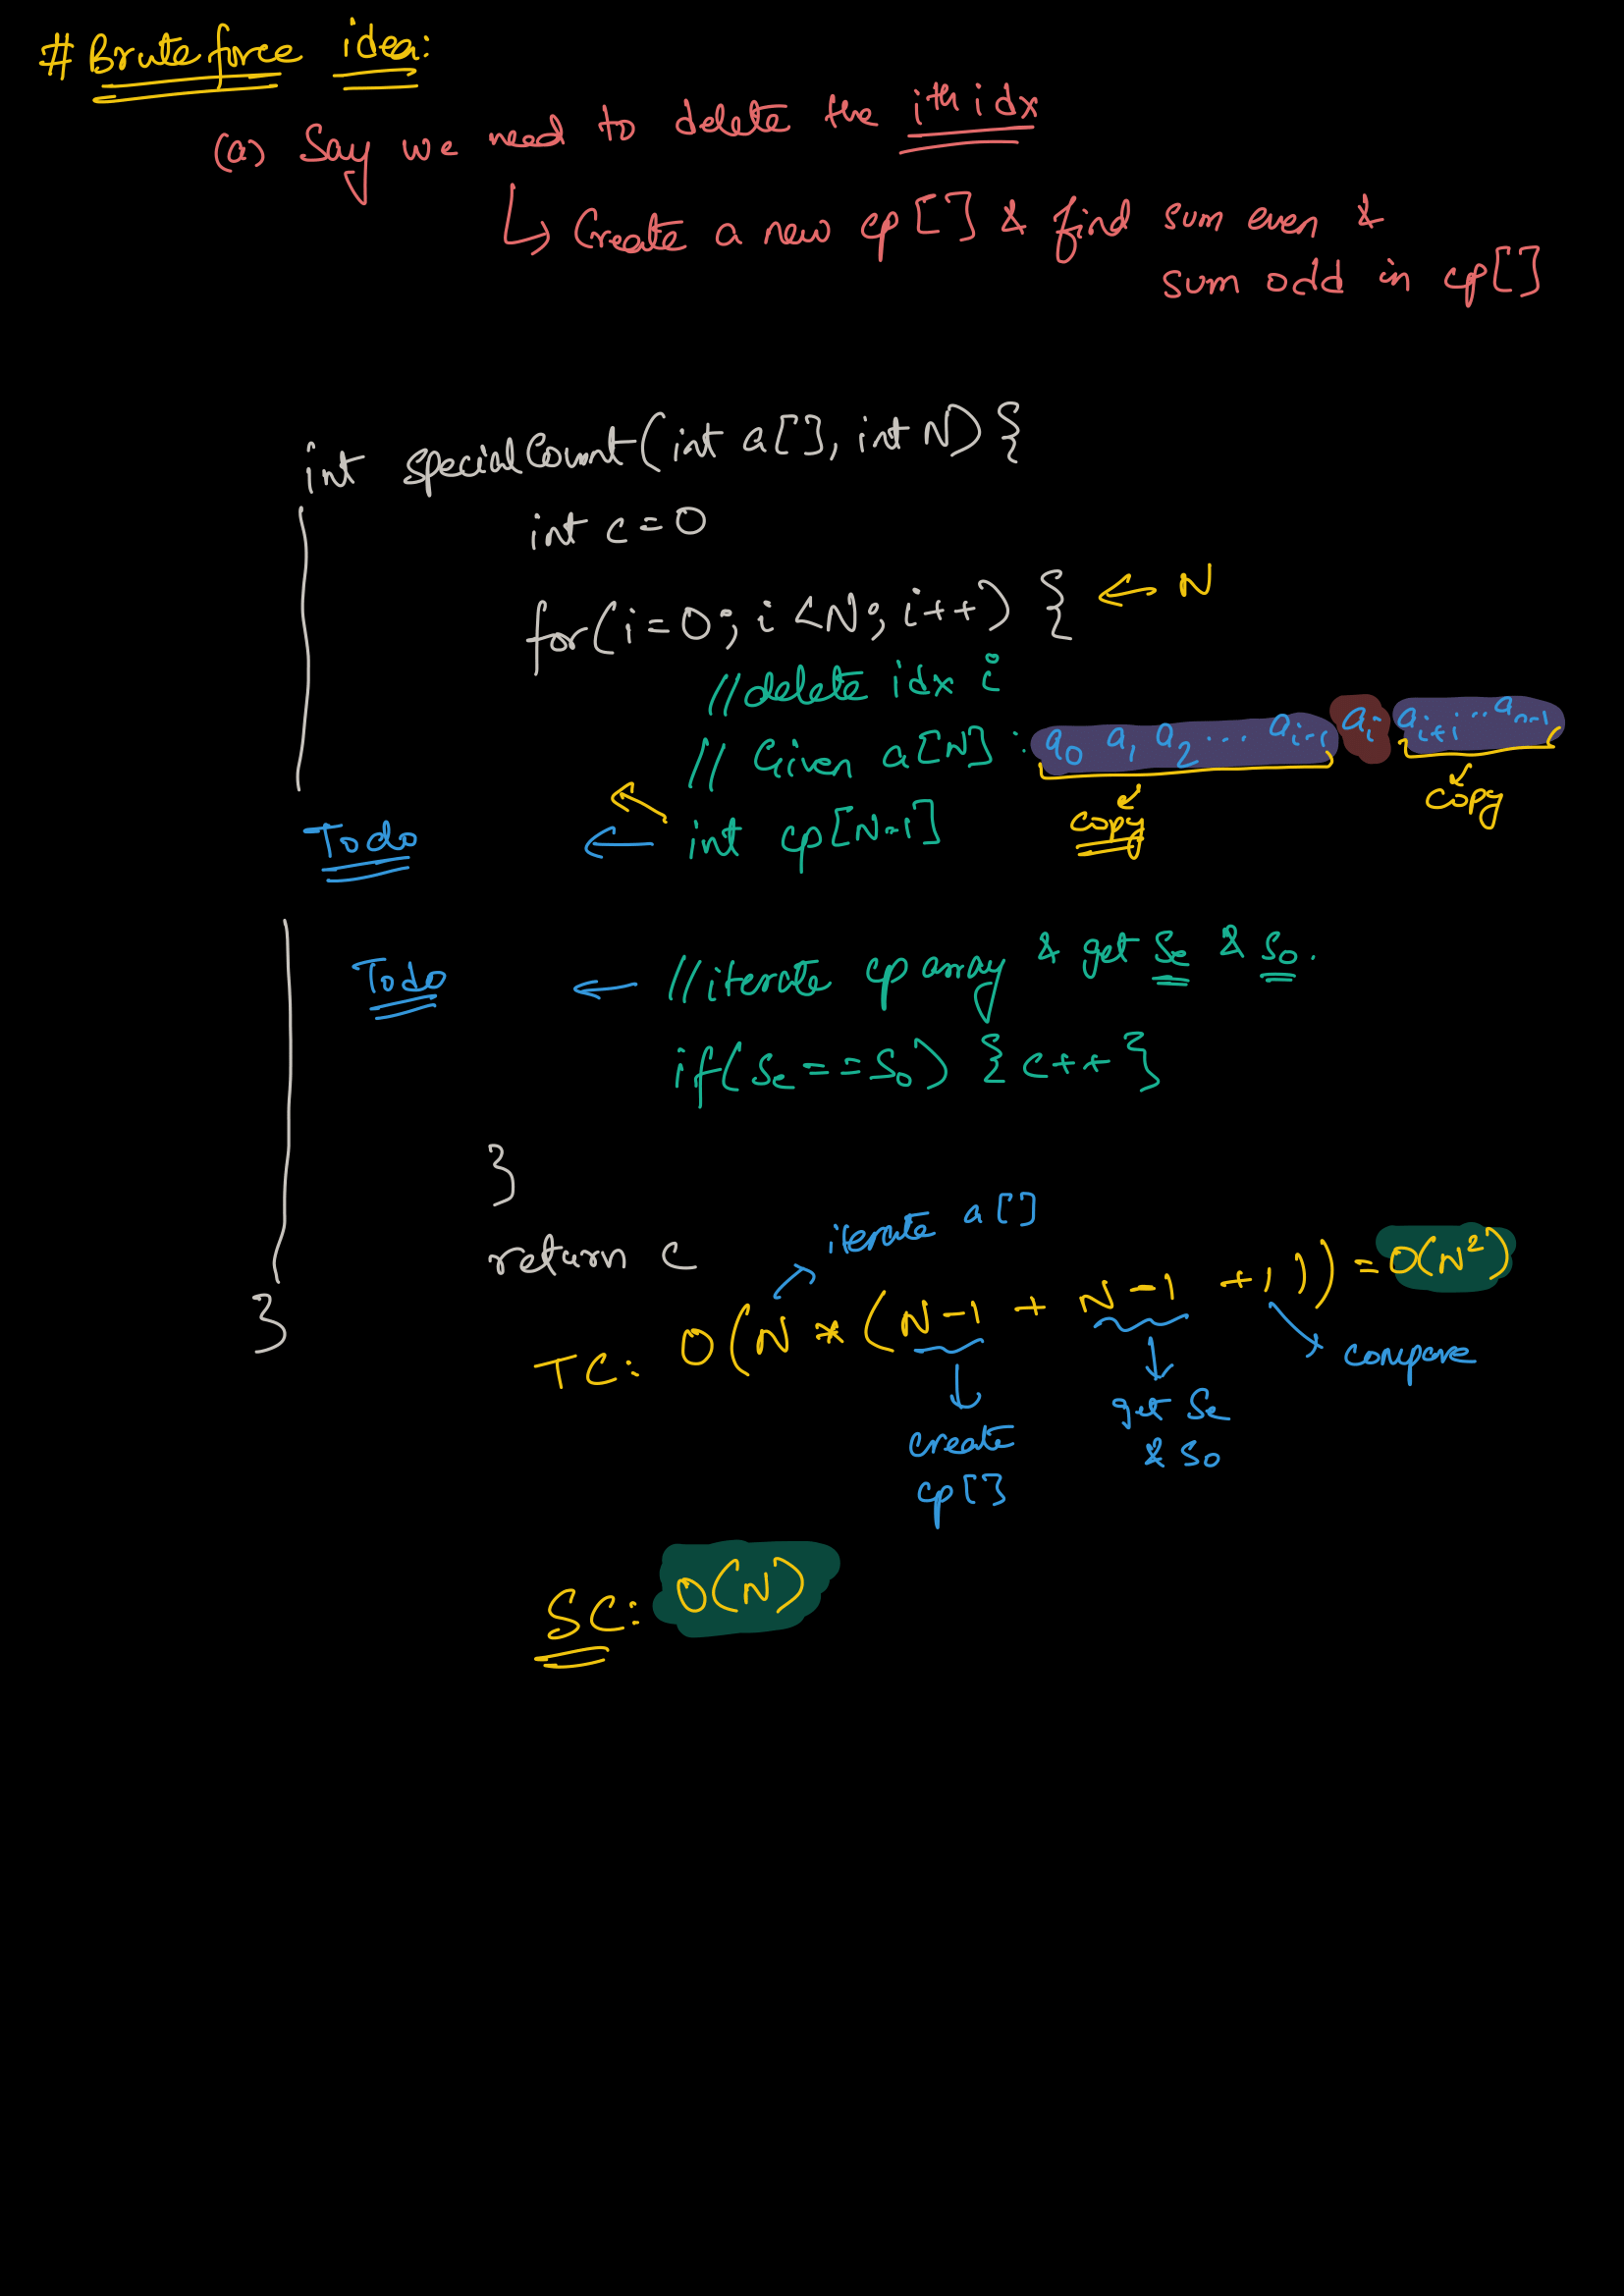 # Brute force idea:
(a) Say we need to delete the iᵗʰ idx
↳ Create a new cp[] & find sum even &
sum odd in cp[]
int specialCount(int a[], int N) {
int c = 0
for(i=0; i<N; i++) { ← N
//delete idx i
// Given a[N] : a₀ a₁ a₂ ... aᵢ₋₁ aᵢ aᵢ₊₁ ... aₙ₋₁
copy copy
Todo ← int cp[N-1]
Todo ← //iterate cp array & get Se & So.
if(Se==So) {c++}
}
return c
iterate a[]
}
TC: O(N * (N-1 + N-1 +1)) = O(N²)
compare
create
cp[]
get Se
& So
SC: O(N)